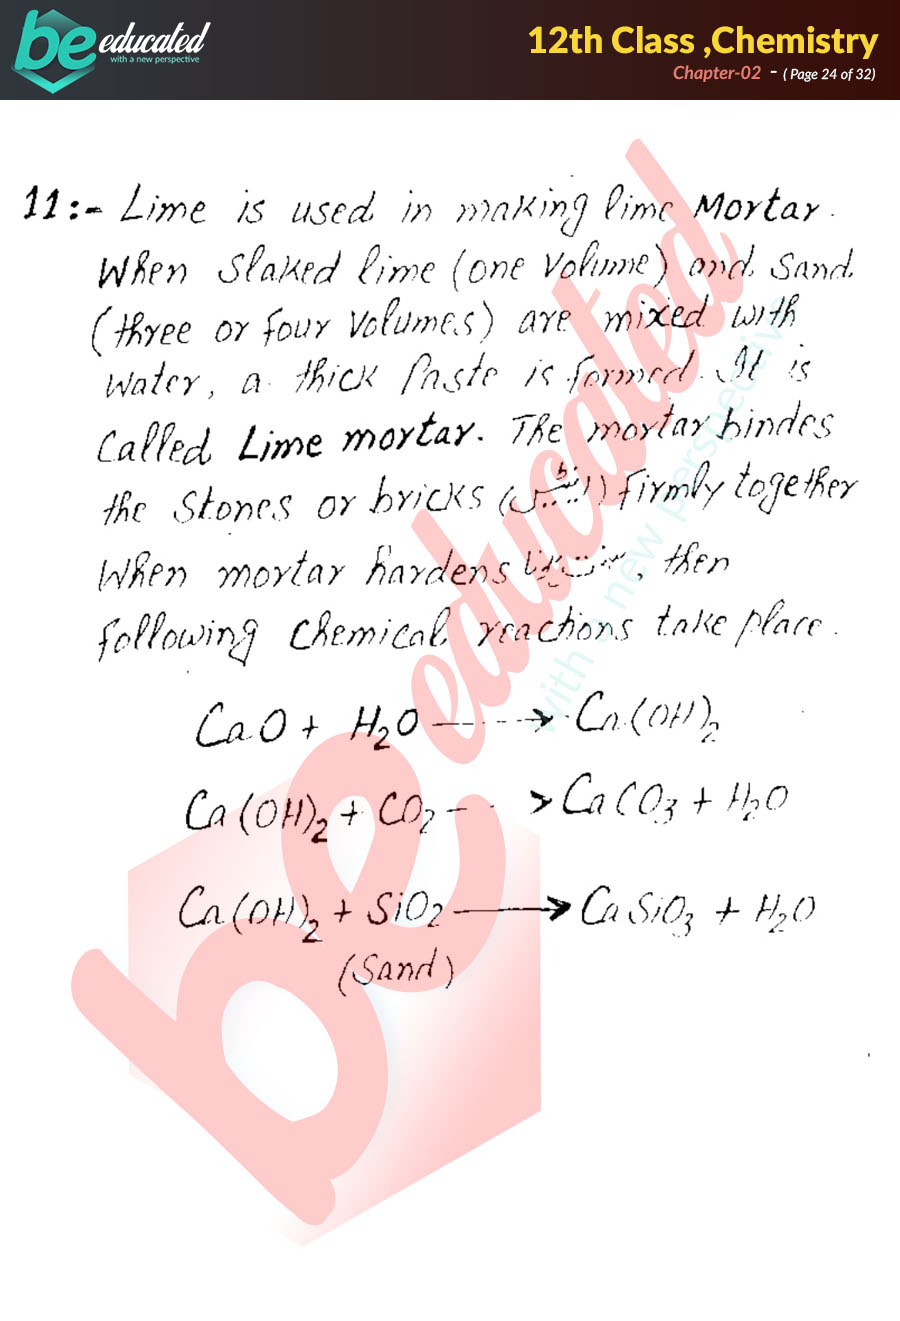 be educated
with a new perspective
12th Class ,Chemistry
Chapter-02 - ( Page 24 of 32)
11:- Lime is used in making lime Mortar.
When slaked lime (one volume) and sand
(three or four volumes) are mixed with
water, a thick paste is formed. It is
called Lime mortar. The mortar bindes
the stones or bricks (اینٹیں) firmly together
when mortar hardens , then
following chemical reactions take place.
CaO + H₂O -----> Ca(OH)₂
Ca(OH)₂ + CO₂ - - > CaCO₃ + H₂O
Ca(OH)₂ + SiO₂ ⟶ CaSiO₃ + H₂O
(Sand)
be educated
with a new perspective